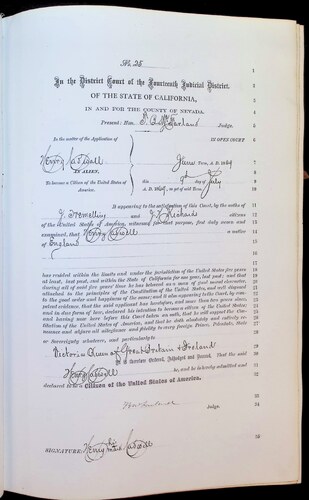 No. 25
In the District Court of the Fourteenth Judicial District,
OF THE STATE OF CALIFORNIA,
IN AND FOR THE COUNTY OF NEVADA.
Present: Hon. T. B. McFarland Judge.
In the matter of the Application of IN OPEN COURT
Henry
AN ALIEN, Term, A. D.
To become a Citizen of the United States of America. this day of July
A. D. being of said Term.
It appearing to the satisfaction of this Court, by the oaths of
J. Tremelling and Richards citizens
of the United States of America, witnesses for that purpose, first duly sworn and
examined, that Henry a native
of England
has resided within the limits and under the jurisdiction of the United States five years
at least, last past, and within the State of California for one year, last past; and that
during all of said five years' time he has behaved as a man of good moral character,
attached to the principles of the Constitution of the United States, and well disposed
to the good order and happiness of the same; and it also appearing to the Court, by com-
petent evidence, that the said applicant has heretofore, and more than two years since,
and in due form of law, declared his intention to become a citizen of the United States;
and having now here before this Court taken an oath, that he will support the Con-
stitution of the United States of America, and that he doth absolutely and entirely re-
nounce and abjure all allegiance and fidelity to every foreign Prince, Potentate, State
or Sovereignty whatever, and particularly to
Victoria Queen of Great Britain & Ireland
It is therefore Ordered, Adjudged and Decreed, That the said
Henry be, and he is hereby admitted and
declared to be a Citizen of the United States of America.
Judge
SIGNATURE: Henry
1
2
3
4
5
6
7
8
9
10
11
12
13
14
15